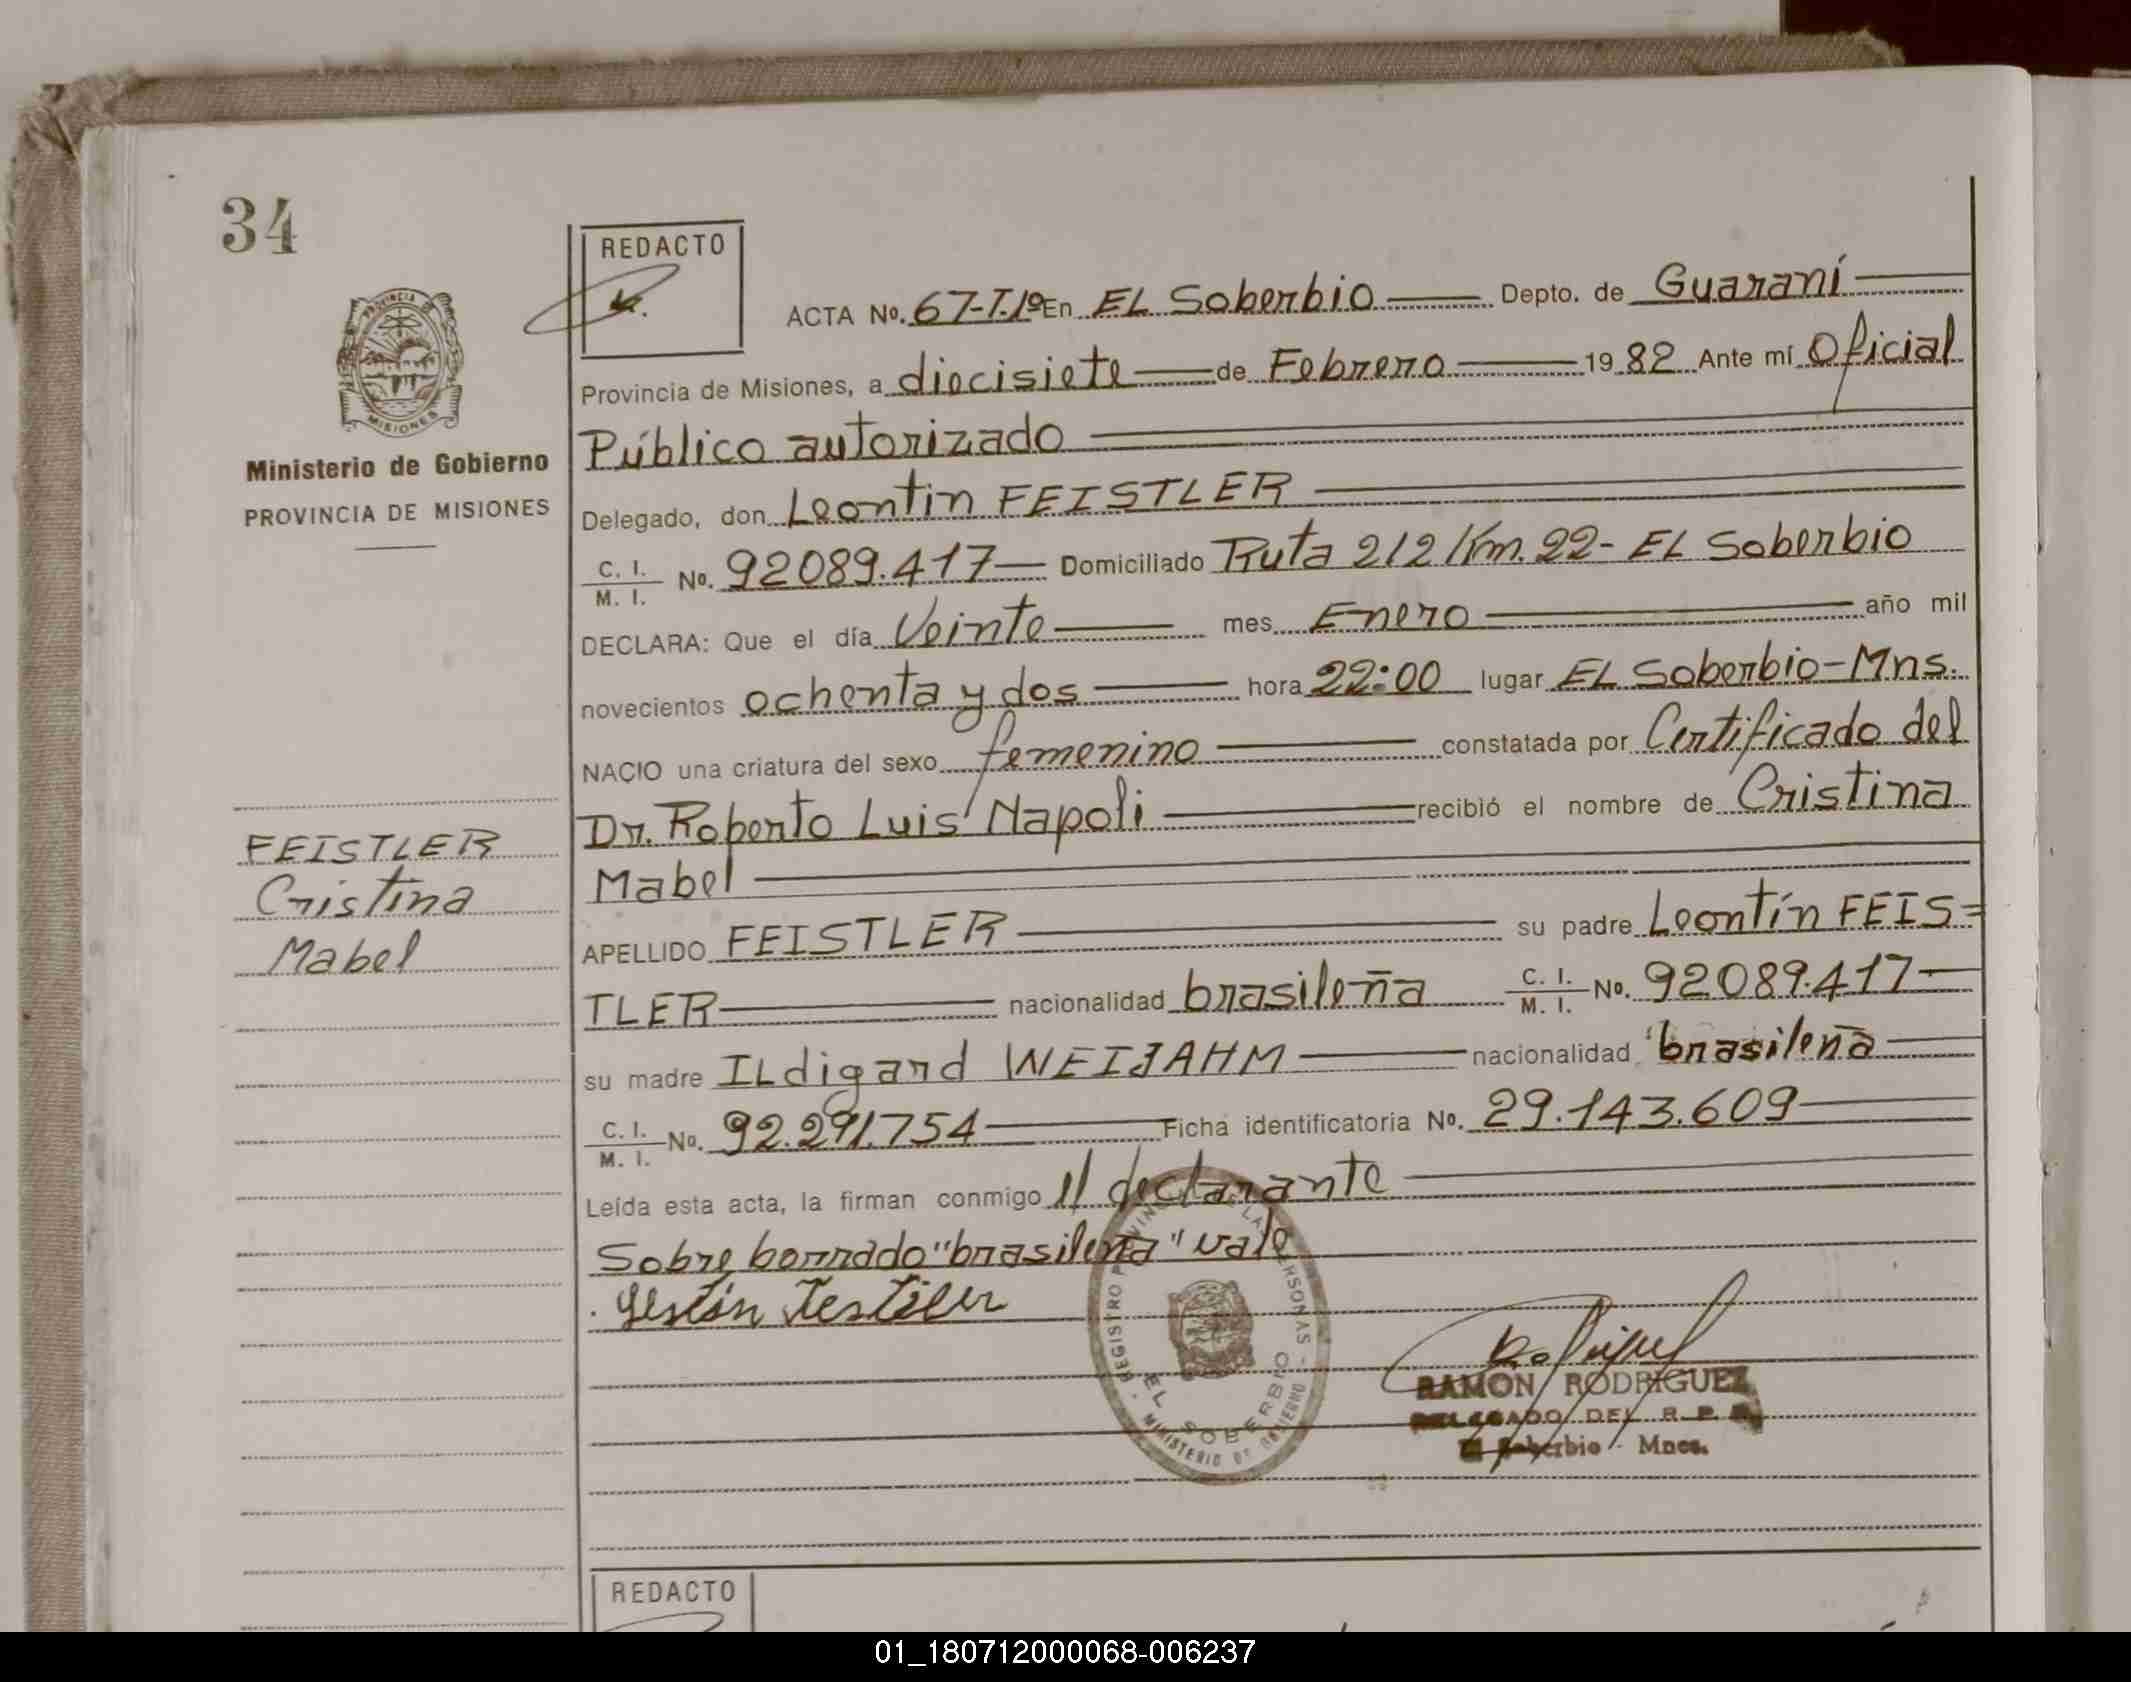 34
REDACTO
ACTA Nº. 67-T.1º En EL Soberbio Depto. de Guaraní
Provincia de Misiones, a diecisiete de Febrero 1982 Ante mí Oficial
Público autorizado
Delegado, don Leontin FEISTLER
C. I. / M. I. Nº. 92089.417 Domiciliado Ruta 212 Km. 22- EL Soberbio
DECLARA: Que el día Veinte mes Enero año mil
novecientos ochenta y dos hora 22:00 lugar EL Soberbio-Mns.
NACIO una criatura del sexo femenino constatada por Certificado del
Dr. Roberto Luis Napoli recibió el nombre de Cristina
Mabel
APELLIDO FEISTLER su padre Leontín FEIS=
TLER nacionalidad brasileña C. I. / M. I. Nº. 92089.417
su madre ILdigard WEIJAHM nacionalidad brasileña
C. I. / M. I. Nº. 92.291.754 Ficha identificatoria Nº. 29.143.609
Leída esta acta, la firman conmigo el declarante
Sobre borrado "brasileña" vale
RAMON RODRIGUEZ
DELEGADO DEL R. P. P.
El Soberbio - Mnes.
REGISTRO PROVINCIAL DE LAS PERSONAS - MINISTERIO DE GOBIERNO
EL SOBERBIO
PROVINCIA
MISIONES
Ministerio de Gobierno
PROVINCIA DE MISIONES
FEISTLER
Cristina
Mabel
REDACTO
01_180712000068-006237